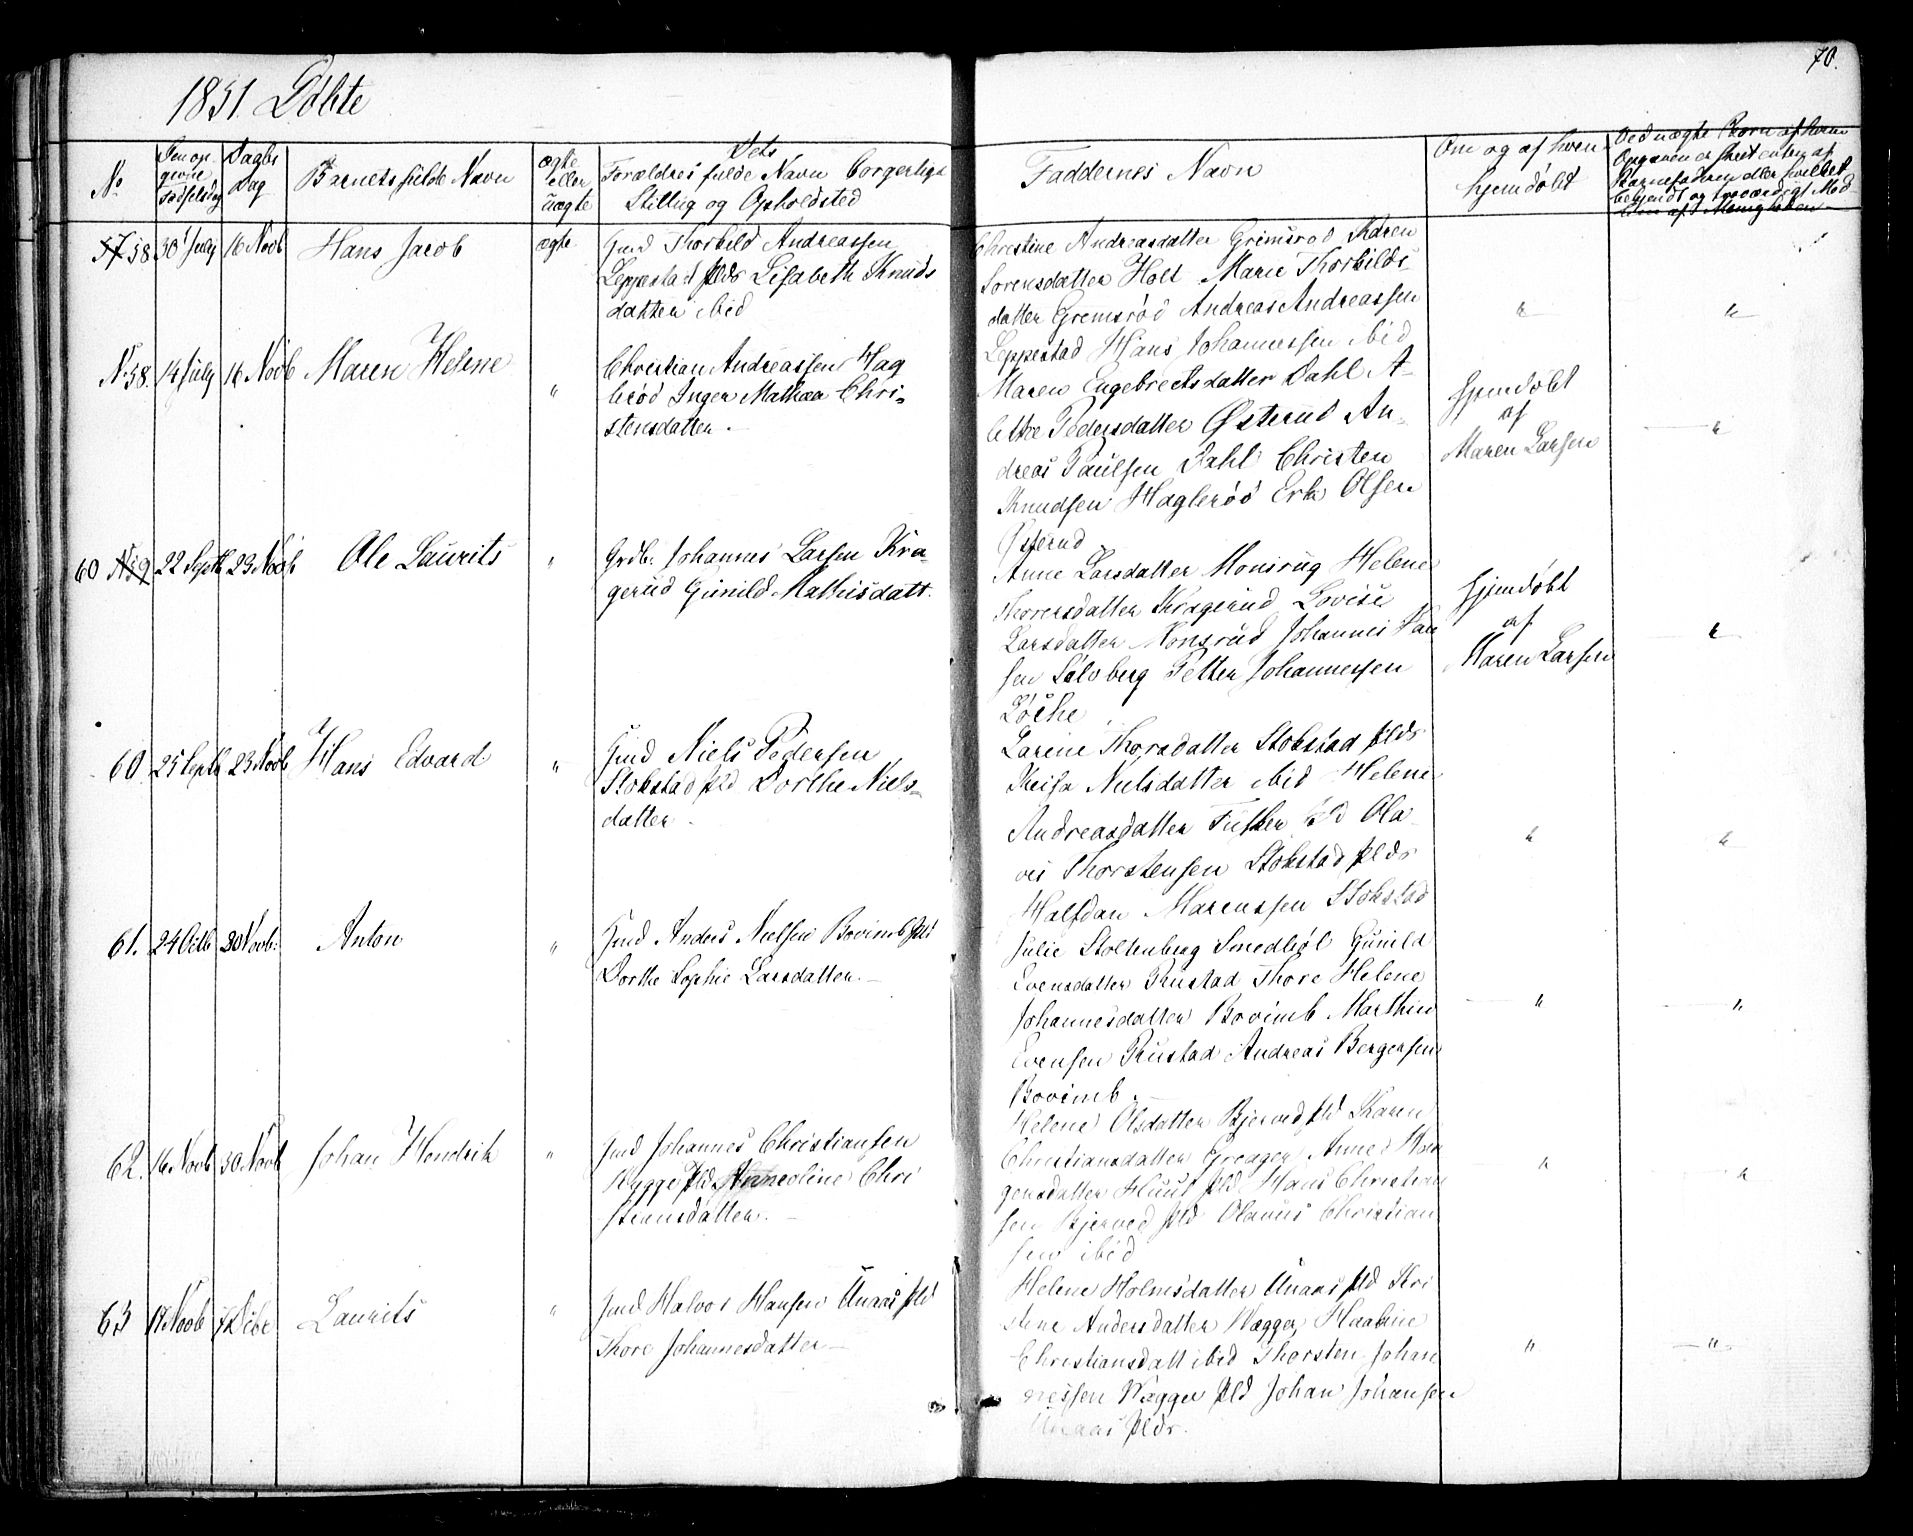 1851 Döbte
70.
No
Den op-
givne
Fødselsdag
Daabs
Dag
Barnets fulde Navn
ægte
eller
uægte
Dets
Forældres fulde Navn borgerlige
Stilling og Opholdsted
Faddernes Navn
Om og af hvem
hjemdøbt
Ved uægte Børn af hvem
Opgaven er skeet enten af
Barnefaderen eller hvilket
bekjendt og troværdigt Med
lem af Menigheden
57 58 30 July 16 Novb Hans Jacob ægte
Gmd Thorbild Andreassen
Leppestad plds Lisabeth Knuds
datter ibid
Christine Andreasdatter Grimsrød Karen
Sorensdatter Holt Marie Thorbilds
datter Gremsrød Andreas Andreassen
Leppestad Hans Johannessen ibid
" "
N. 58. 14 July 16 Novb Maren Helene "
Christian Andreassen Hag
lerød Inger Mathea Chri-
stensdatter.
Maren Engebretsdatter Dahl A-
lethe Pedersdatter Østerud An-
dreas Paulsen Dahl Christen
Knudsen Haglerød Erk Olsen
Østerud
Hjemdøbt
af
Maren Larsen
"
60 N59 22 Septb 23 Novb Ole Laurits "
Grdb. Johannes Larsen Kra-
gerud Gunild Mathisdatt.
Anne Larsdatter Monsrug Helene
Thorersdatter Kragerud Lovise
Larsdatter Monsrud Johannes
sen Sølvberg Petter Johannessen
Löche
Hjemdøbt
af
Maren Larsen
"
60 25 Septb 23 Novb Hans Edvard "
Gmd Niels Pedersen
Stokstad pld Dorthe Niels-
datter.
Larine Thorsdatter Stokstad plds
Nielsdatter ibid Helene
Andreasdatter pld Ola
ves Thorstensen Stokstad plds
Halfdan Marenssen Stokstad
" "
61. 24 Octb 30 Novb. Anton "
Gmd Anders Nielsen Bovimb pld
Dorthe Sophie Larsdatter.
Julie Stoltenberg Smedhøl Gunild
Evensdatter Rustad Thore Helene
Johannesdatter Bovimb Marthin
Evensen Rustad Andreas Bergersen
Bovimb.
" "
62. 16 Novb 30 Novb Johan Hendrik "
Gmd Johannes Christiansen
Hygge pld Anneoline Chri
stiansdatter.
Helene Olsdatter Bjerved pld Karen
Christiansdatter Greager Anne
gensdatter Huul pld Hans Christian
sen Bjerved pld Olaus Christian
sen ibid
" "
63 17 Novb 7 Decbr Laurits "
Gmd Halvor Hansen Unaas pld
Thore Johannesdatter
Helene Holmsdatter Unaas pld Kri
stine Andersdatter Wægger Haakine
Christiansdatt ibid Thorsten Johan
nessen Wægger pld Johan Johansen
Unaas plds.
" "